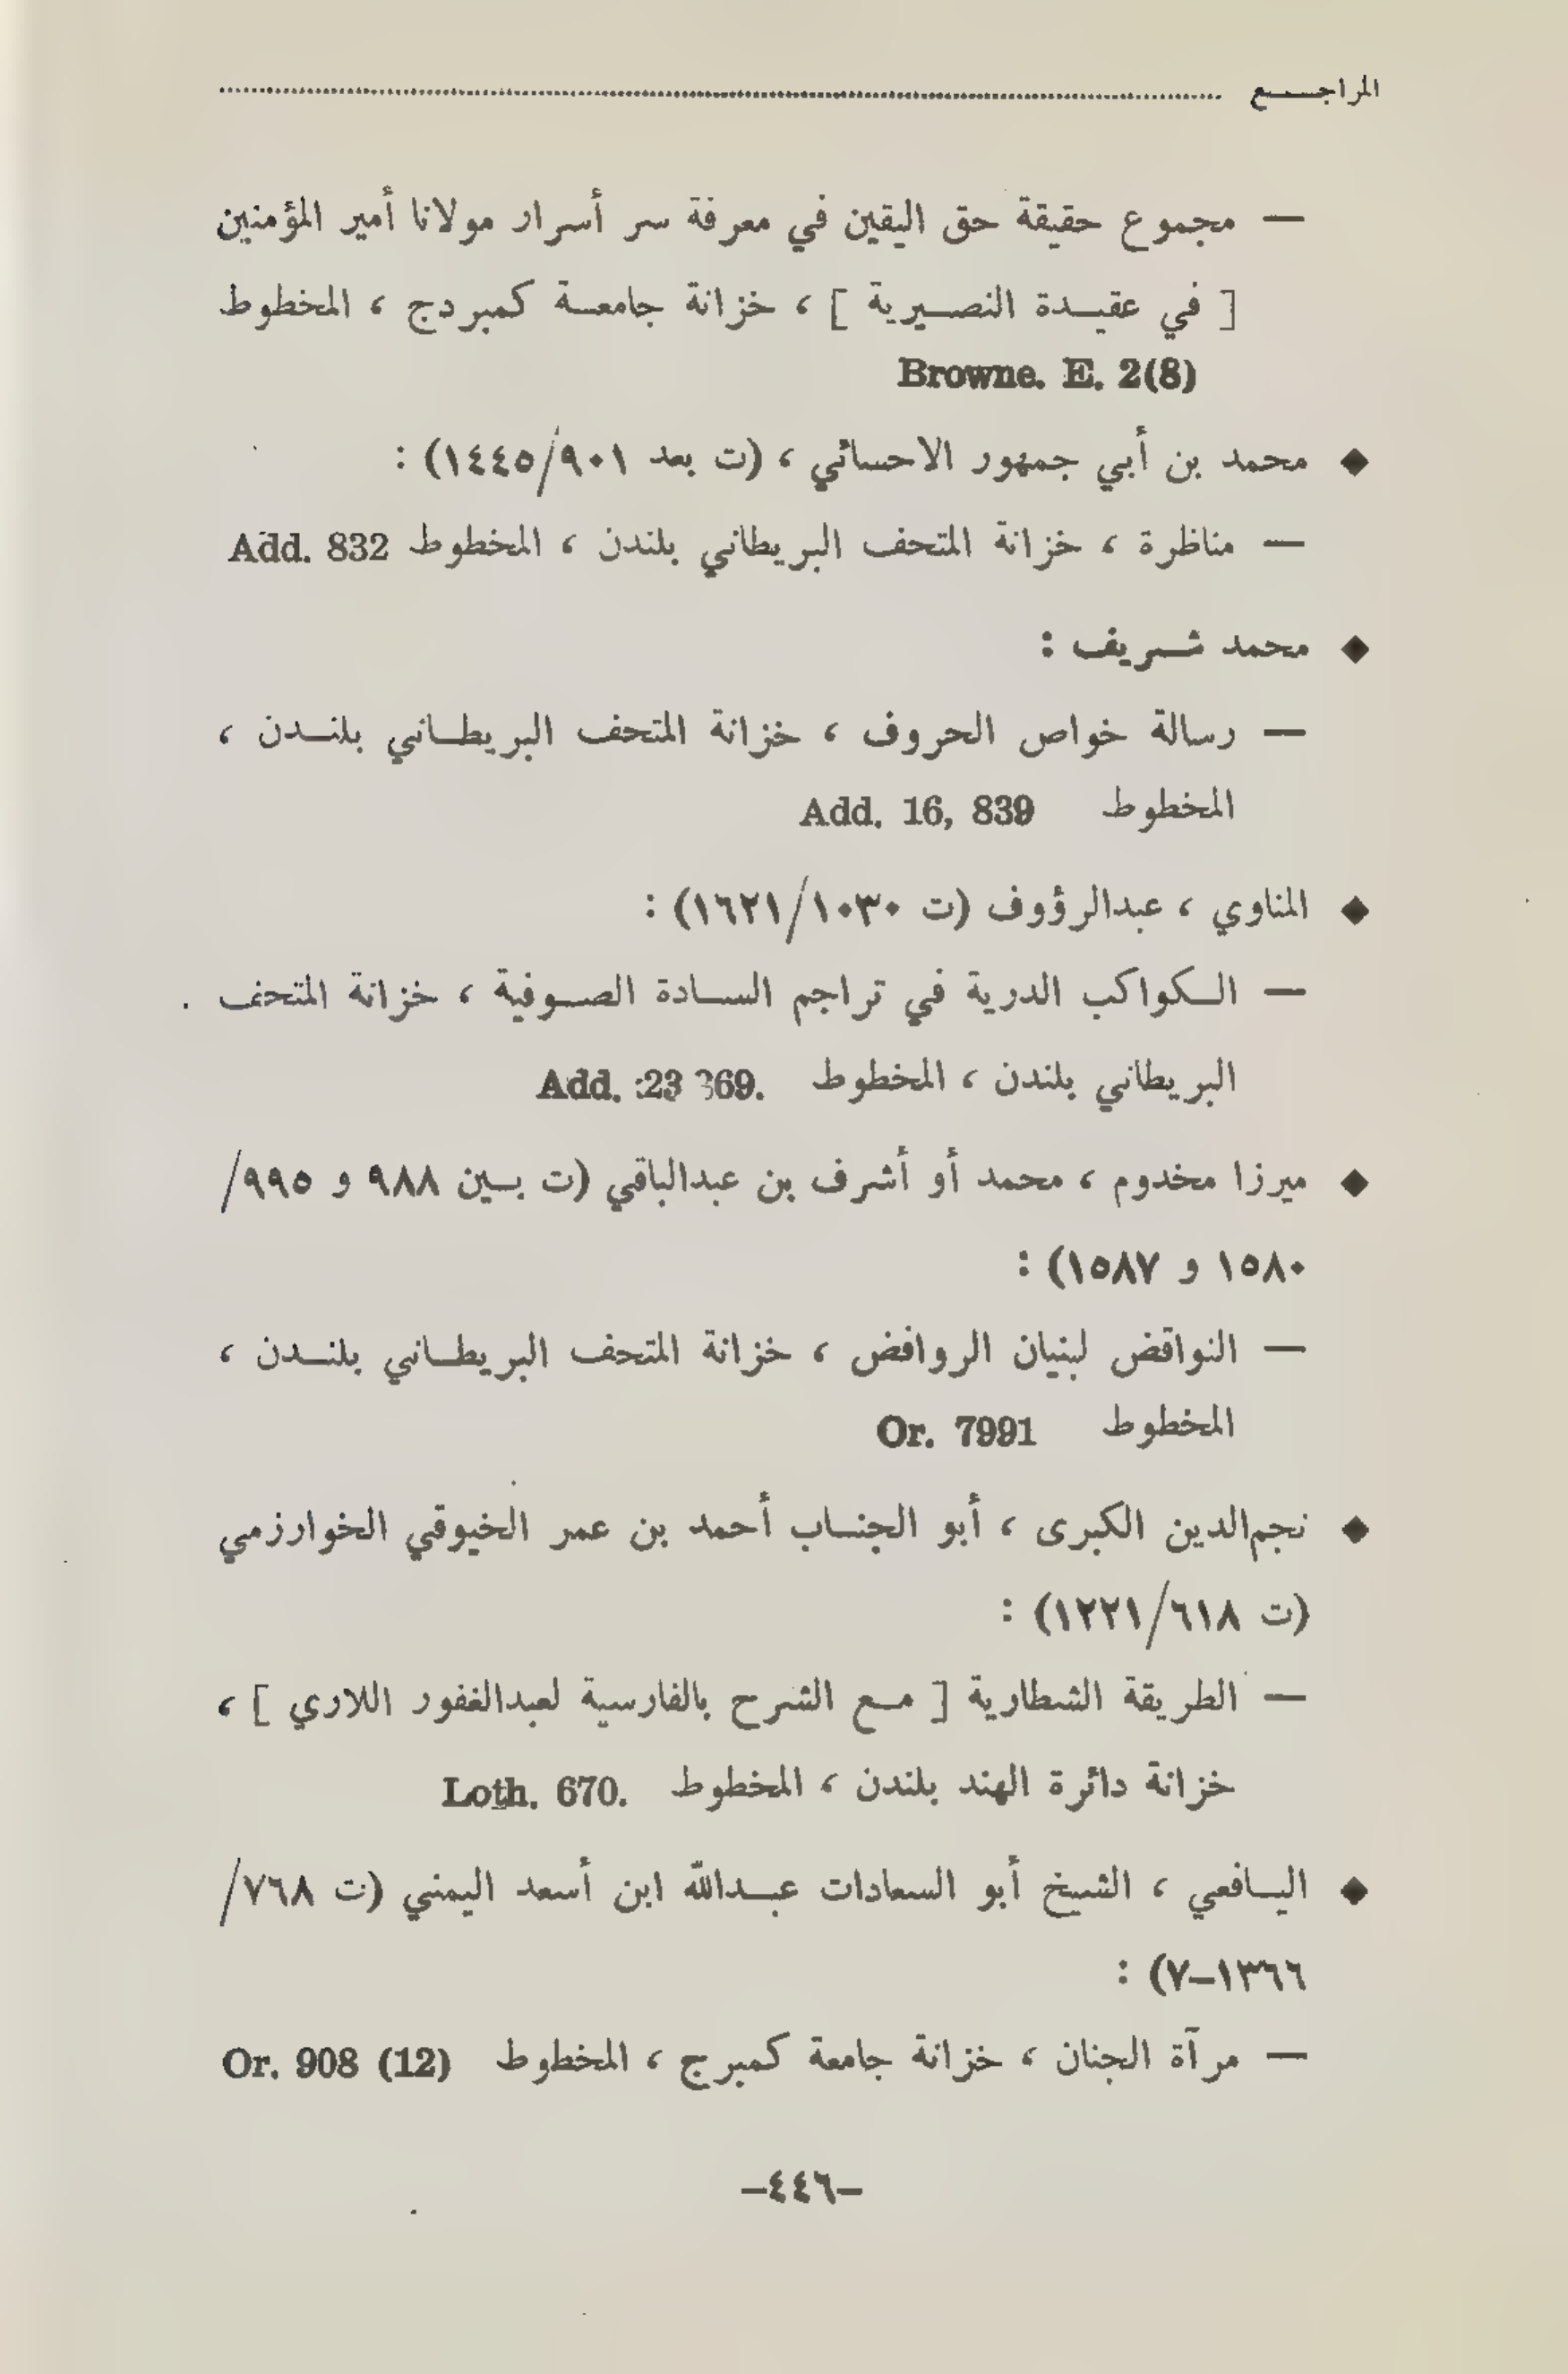 المراجـــع ........................................
— مجموع حقيقة حق اليقين في معرفة سر أسرار مولانا أمير المؤمنين
[ في عقيـدة النصـيرية ] ، خزانة جامعـة كمبردج ، المخطوط
Browne. E. 2(8)
◆ محمد بن أبي جمهور الاحسائي ، (ت بعد ٩٠١/١٤٤٥) :
— مناظرة ، خزانة المتحف البريطاني بلندن ، المخطوط Add. 832
◆ محمد شـريف :
— رسالة خواص الحروف ، خزانة المتحف البريطـاني بلنـدن ،
المخطوط Add. 16, 839
◆ المناوي ، عبدالرؤوف (ت ١٠٣٠/١٦٢١) :
— الـكواكب الدرية في تراجم السـادة الصـوفية ، خزانة المتحف
البريطاني بلندن ، المخطوط Add. 23 369.
◆ ميرزا مخدوم ، محمد أو أشرف بن عبدالباقي (ت بـين ٩٨٨ و ٩٩٥/
١٥٨٠ و ١٥٨٧) :
— النواقض لبنيان الروافض ، خزانة المتحف البريطـاني بلنـدن ،
المخطوط Or. 7991
◆ نجم‌الدين الكبرى ، أبو الجنـاب أحمد بن عمر الخيوقي الخوارزمي
(ت ٦١٨/١٢٢١) :
— الطريقة الشطارية [ مـع الشرح بالفارسية لعبدالغفور اللاري ] ،
خزانة دائرة الهند بلندن ، المخطوط Loth. 670.
◆ اليـافعي ، الشيخ أبو السعادات عبـدالله ابن أسعد اليمني (ت ٧٦٨/
١٣٦٦–٧) :
— مرآة الجنان ، خزانة جامعة كمبرج ، المخطوط Or. 908 (12)
–٤٤٦–